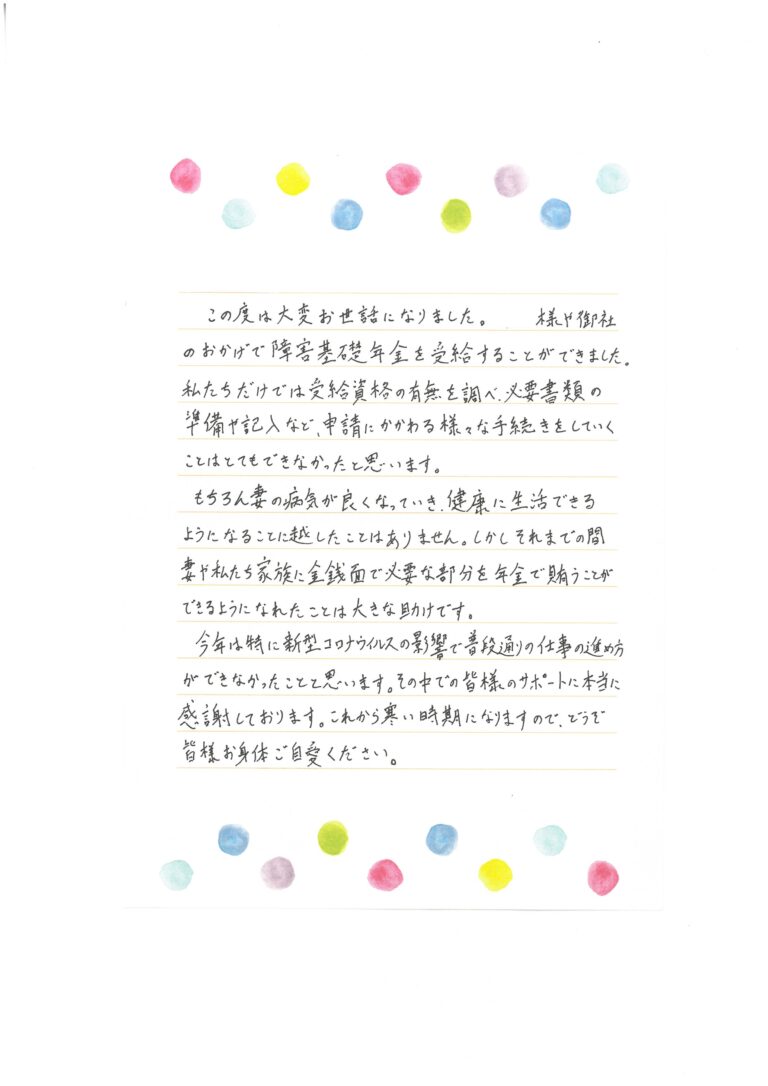 この度は大変お世話になりました。　　　様や御社
のおかげで障害基礎年金を受給することができました。
私たちだけでは受給資格の有無を調べ、必要書類の
準備や記入など、申請にかかわる様々な手続きをしていく
ことはとてもできなかったと思います。
もちろん妻の病気が良くなっていき、健康に生活できる
ようになることに越したことはありません。しかしそれまでの間
妻や私たち家族に金銭面で必要な部分を年金で賄うことが
できるようになれたことは大きな助けです。
今年は特に新型コロナウイルスの影響で普段通りの仕事の進め方
ができなかったことと思います。その中での皆様のサポートに本当に
感謝しております。これから寒い時期になりますので、どうぞ
皆様お身体ご自愛ください。